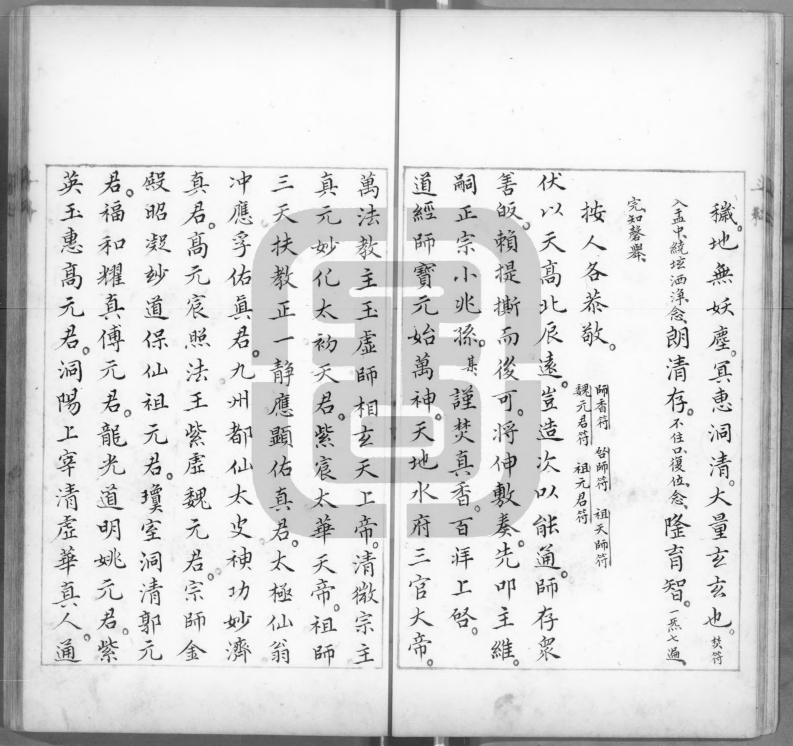 穢。地無妖塵。冥惠洞清。大量玄玄也。焚符
入盂中、繞壇洒淨、念、朗清存。不住口、復位、念、隆育智。一炁七遍、
完、知磬舉、
按人各恭敬。
師香符　台師符　祖天師符
魏元君符　祖元君符
伏以天高北辰遠。豈造次以能通師存衆
善皈。賴提撕而後可。將伸敷奏。先叩主維。
嗣正宗小兆孫。某謹焚真香。百拜上啓。
道經師寶元始萬神。天地水府三官大帝。
萬法教主玉虛師相玄天上帝。清微宗主
真元妙化太初天君。紫宸太華天帝。祖師
三天扶教正一靜應顯佑真君。太極仙翁
冲應孚佑真君。九州都仙太史神功妙濟
真君。高元宸照法王紫虛魏元君。宗師金
殿昭凝妙道保仙祖元君。瓊室洞清郭元
君。福和耀真傅元君。龍光道明姚元君。紫
英玉惠高元君。洞陽上宰清虛華真人。通